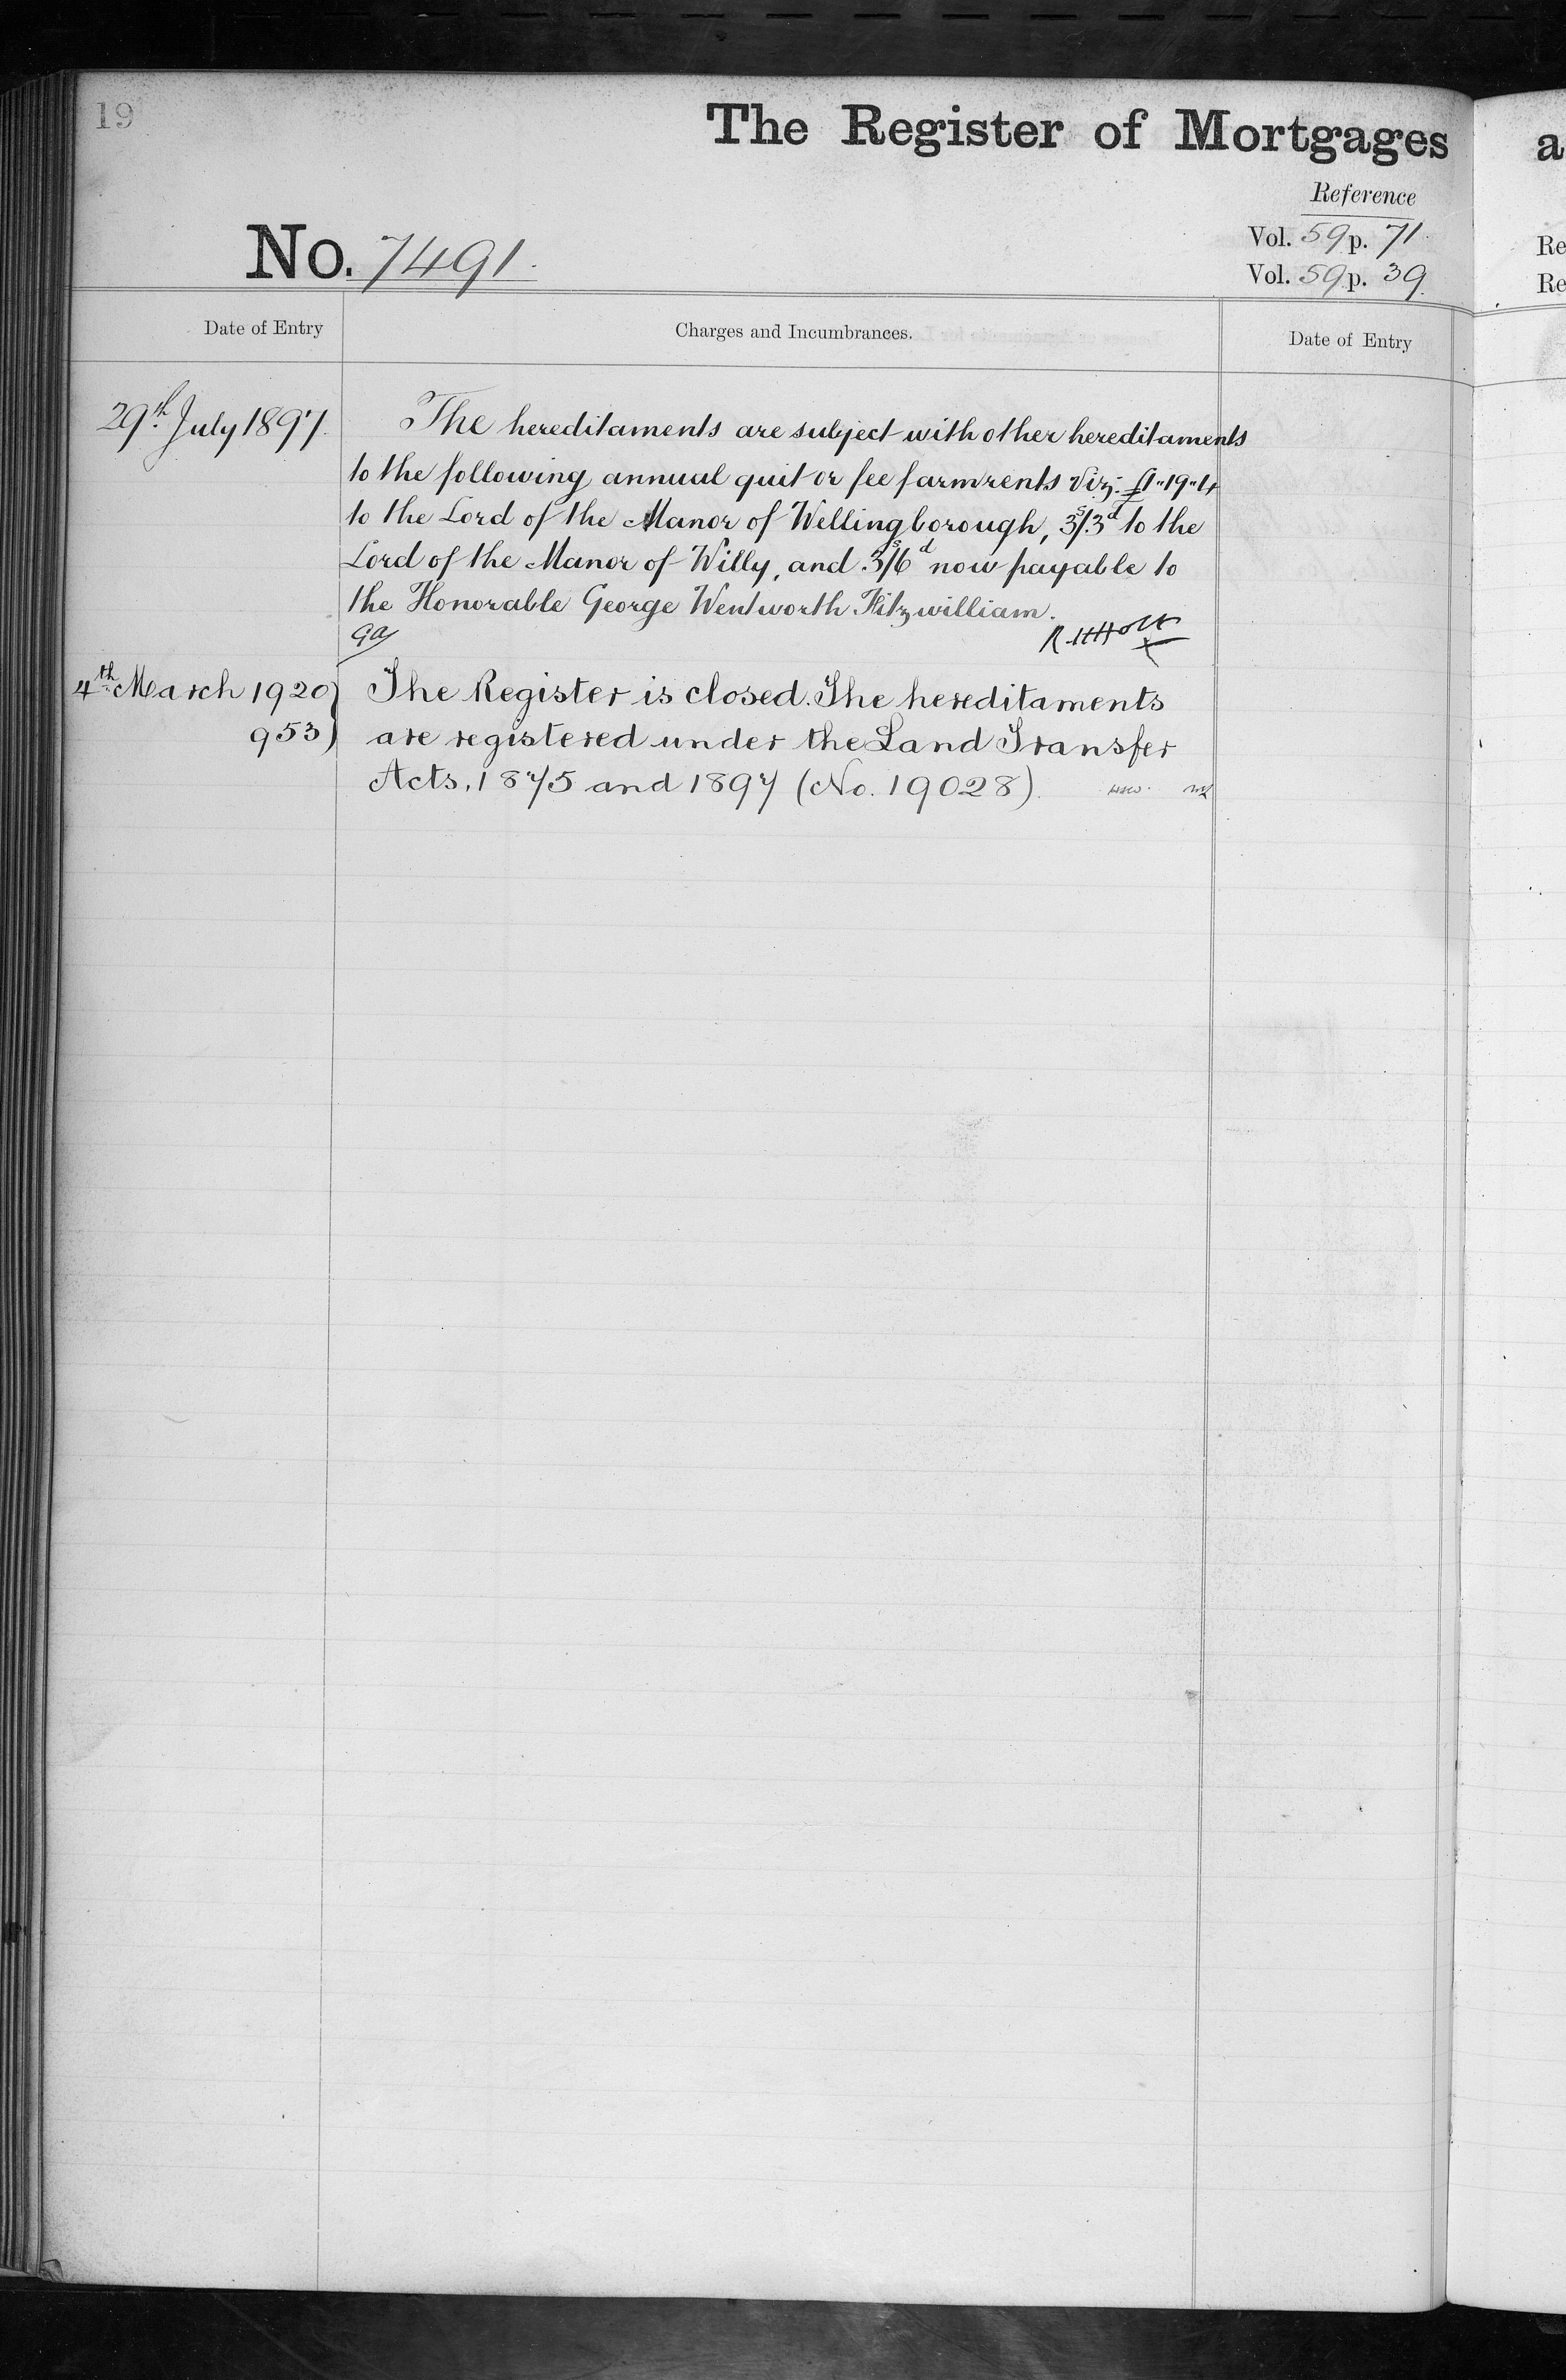 19
The Register of Mortgages
Reference
No. 7491.
Vol. 59 p. 71.
Vol. 59 p. 39
a
Re
Re
Date of Entry
Charges and Incumbrances.
Date of Entry
29th July 1897.
The hereditaments are subject with other hereditaments
to the following annual quit or fee farm rents viz: £1"19"4
to the Lord of the Manor of Wellingborough, 3s/3d to the
Lord of the Manor of Willy, and 3s/6d now payable to
the Honorable George Wentworth Fitzwilliam.
R. H. Holt
4th March 1920)
953)
The Register is closed. The hereditaments
are registered under the Land Transfer
Acts, 1875 and 1897 (No. 19028)